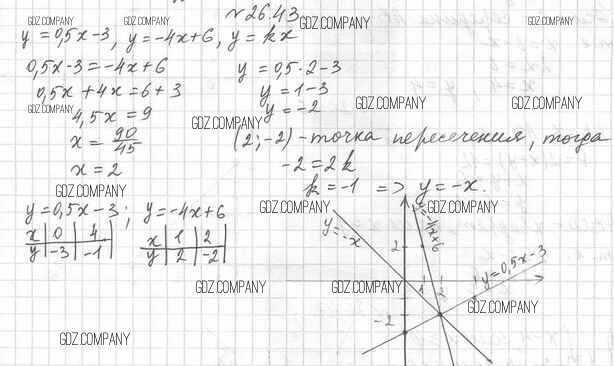 №26.43
GDZ.COMPANY GDZ.COMPANY GDZ.COMPANY GDZ.COMPANY
y = 0,5x-3, y = -4x+6, y = kx
0,5x-3 = -4x+6
0,5x+4x = 6+3
GDZ.COMPANY
4,5x = 9
x = 90/45
x = 2
y = 0,5·2-3
y = 1-3
y = -2
GDZ.COMPANY GDZ.COMPANY
GDZ.COMPANY
(2;-2) - точка пересечения, тогда
-2 = 2k
k = -1 => y = -x.
GDZ.COMPANY GDZ.COMPANY GDZ.COMPANY
y = 0,5x-3; y = -4x+6
x | 0 | 4 |
y | -3 | -1 |
x | 1 | 2 |
y | 2 | -2 |
y=-x
y=-4x+6
y=0,5x-3
2
1 2
-2
GDZ.COMPANY GDZ.COMPANY GDZ.COMPANY
GDZ.COMPANY